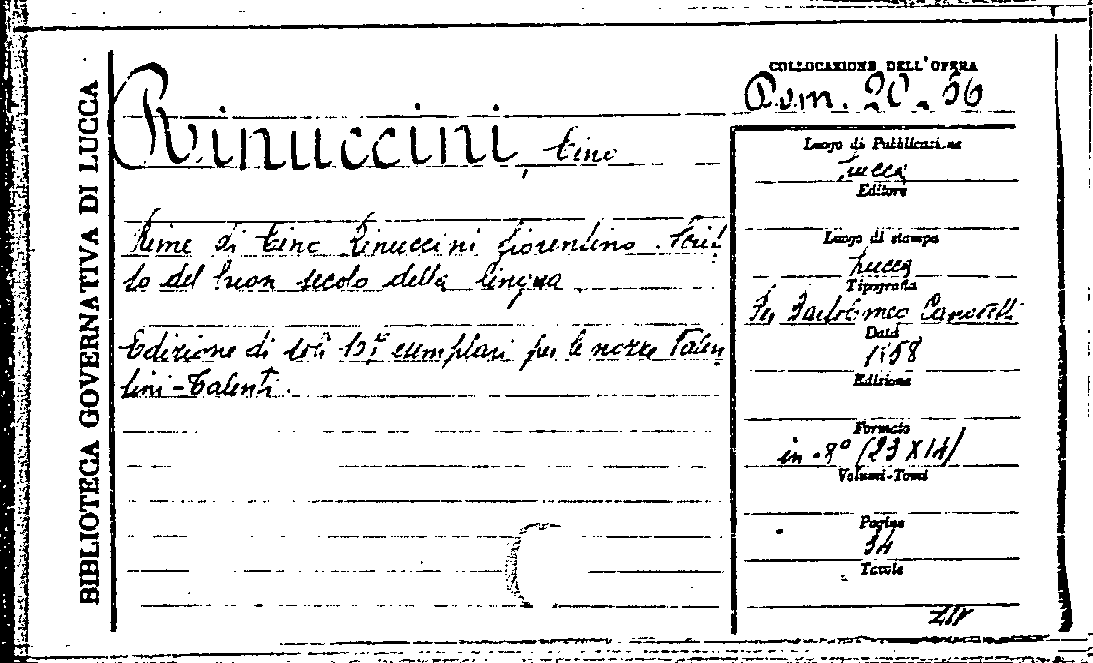 BIBLIOTECA GOVERNATIVA DI LUCCA
Rinuccini, Cino
Rime di Cino Rinuccini fiorentino. Scrit
to del buon secolo della lingua
Edizione di soli esemplari per le nozze Talen
tini-Talenti.
COLLOCAZIONE DELL'OPERA
20.56
Luogo di Pubblicazione
Lucca
Editore
Luogo di stampa
Lucca
Tipografia
Per Bartolomeo Canovetti
Data
Edizione
Formato
in-8º (23X14)
Volumi-Tomi
Pagine
34
Tavole